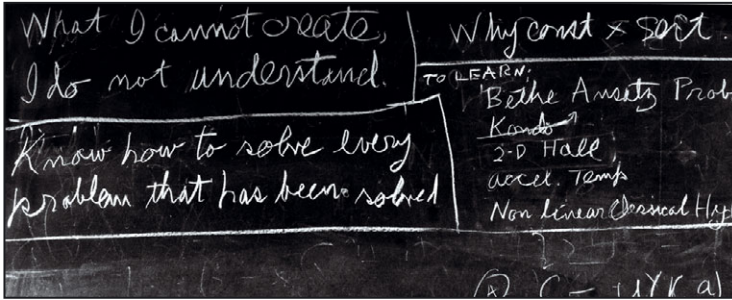 What I cannot create,
I do not understand.
Know how to solve every
problem that has been solved
Why const × sort.
TO LEARN:
Bethe Ansatz Prob
Kondo
2-D Hall
accel. Temp
Non linear Classical Hy